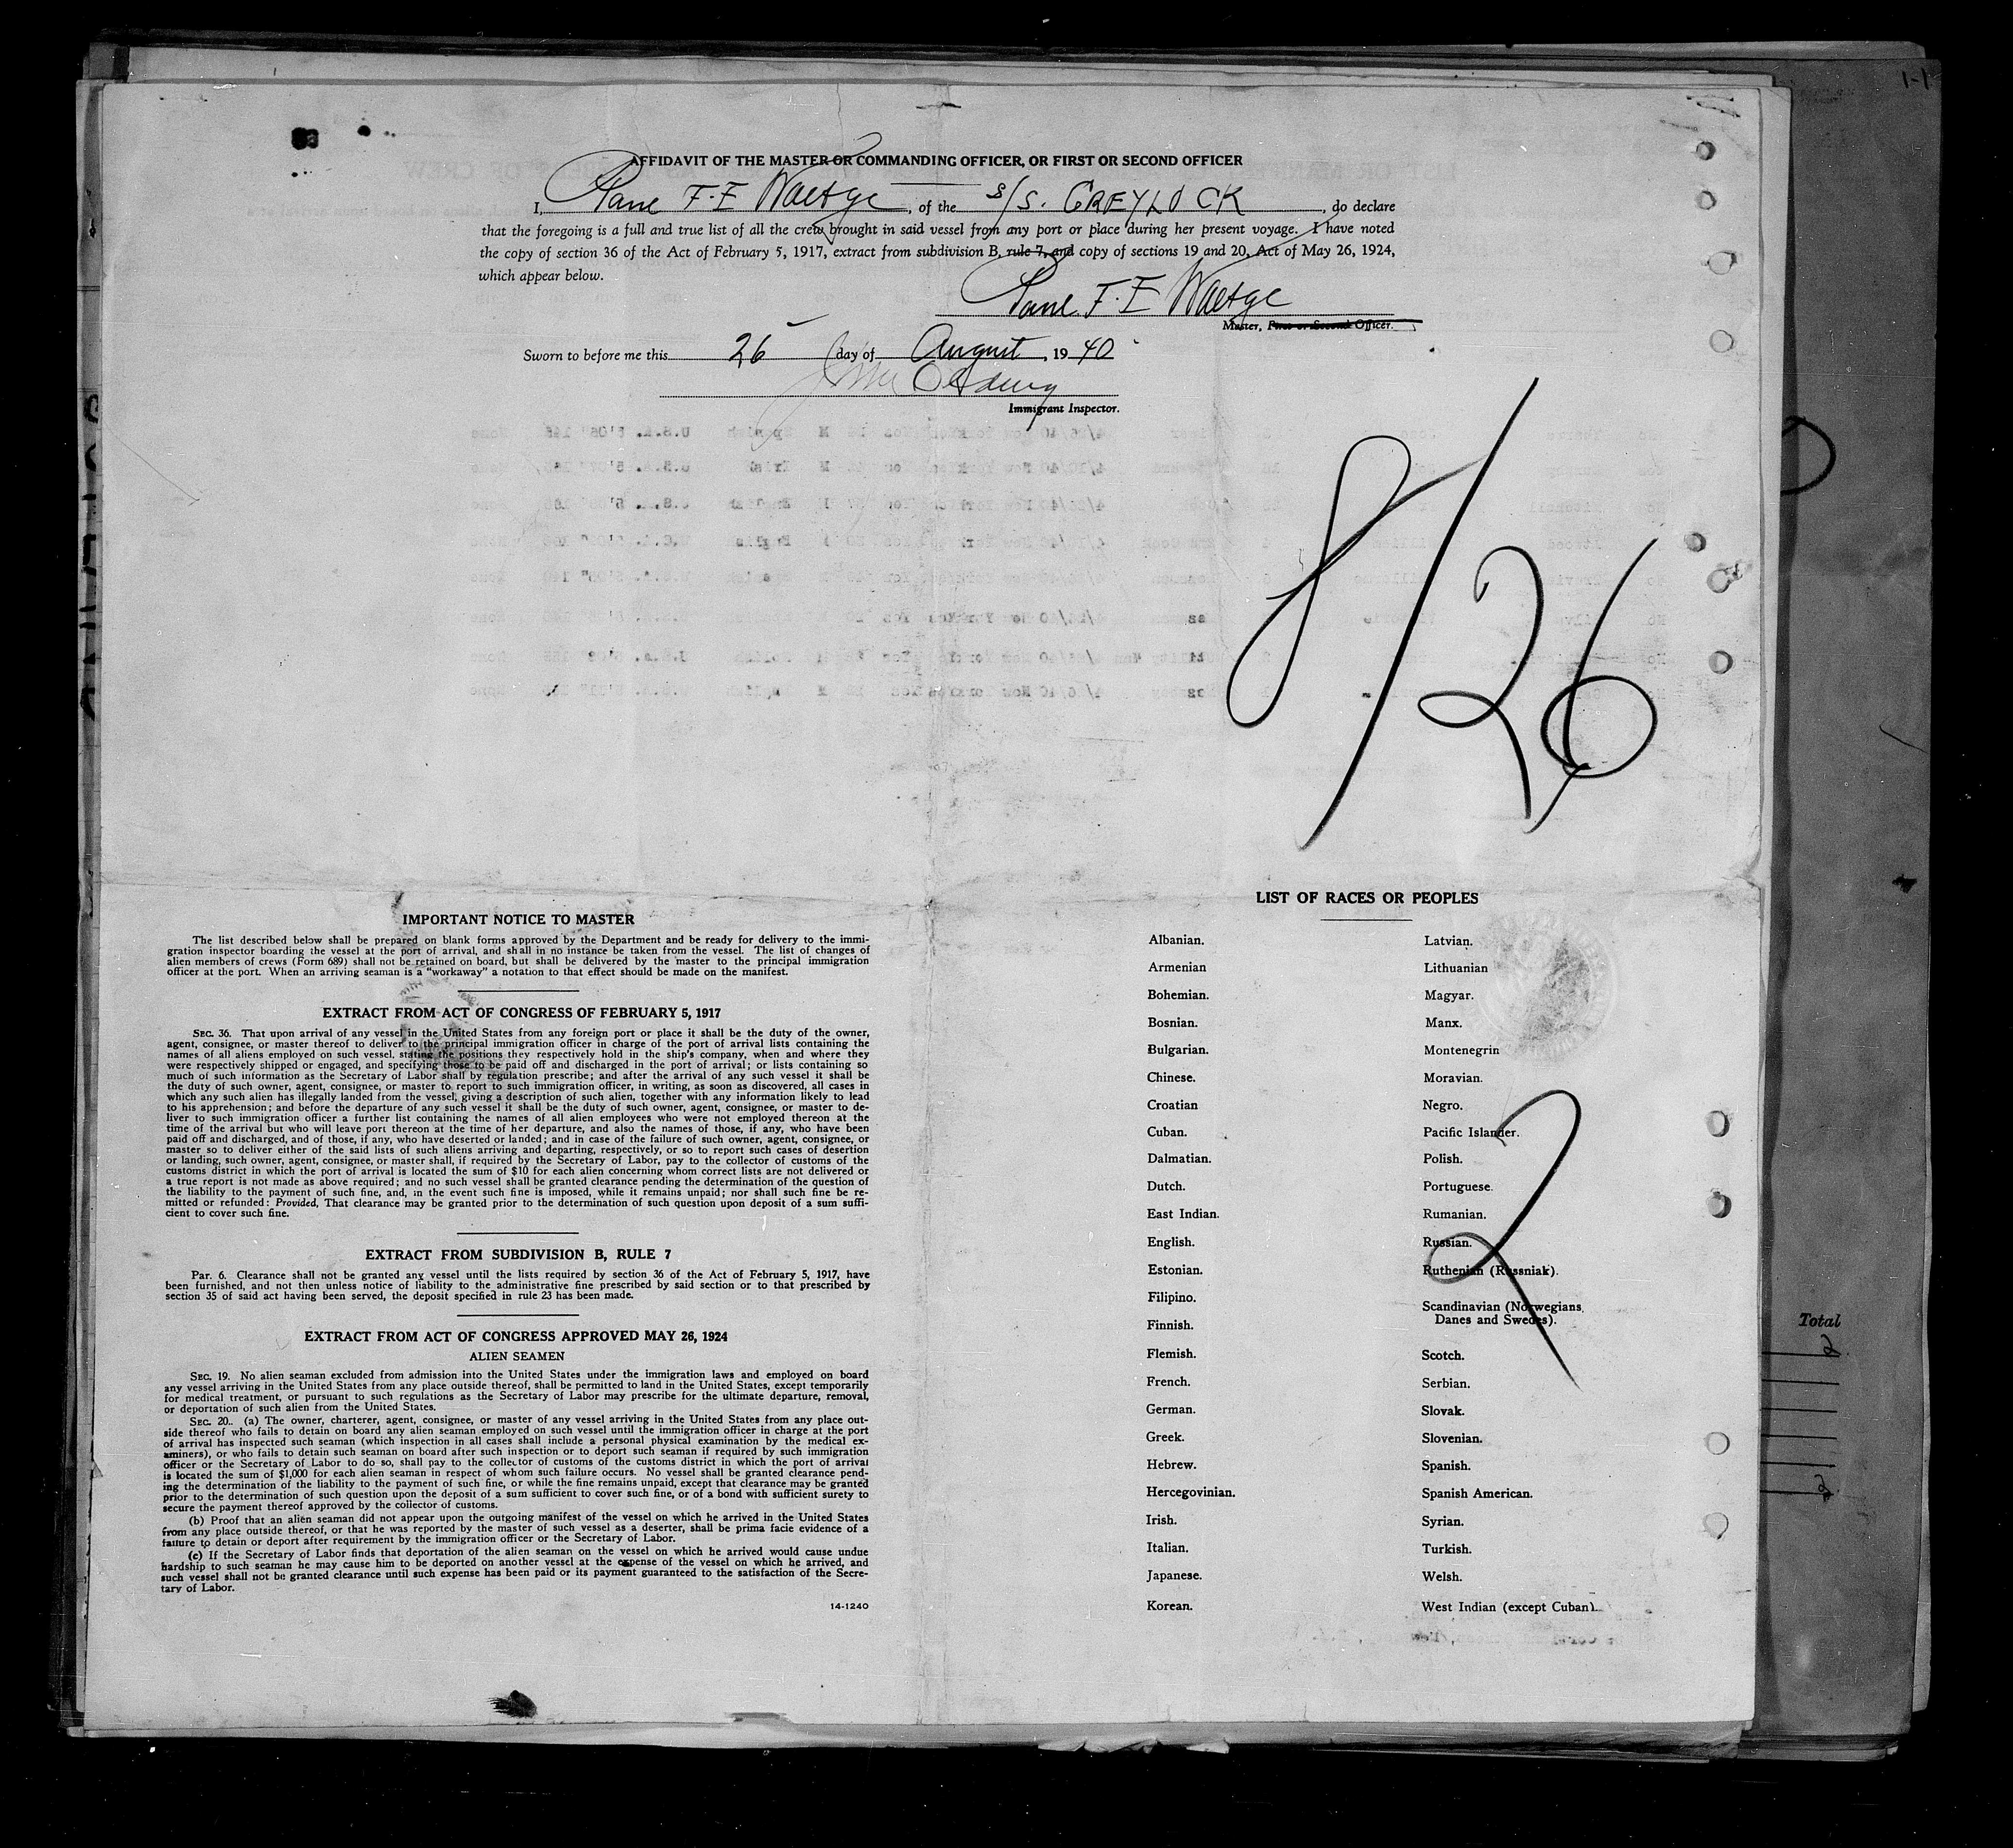 AFFIDAVIT OF THE MASTER OR COMMANDING OFFICER, OR FIRST OR SECOND OFFICER
I, F. E Waetge, of the S/S. GREYLOCK, do declare
that the foregoing is a full and true list of all the crew brought in said vessel from any port or place during her present voyage. I have noted
the copy of section 36 of the Act of February 5, 1917, extract from subdivision B, rule 7, and copy of sections 19 and 20, Act of May 26, 1924,
which appear below.
F. E Waetge
Master, First or Second Officer.
Sworn to before me this 26 day of August, 1940
Immigrant Inspector.
8/26
IMPORTANT NOTICE TO MASTER
The list described below shall be prepared on blank forms approved by the Department and be ready for delivery to the immi-
gration inspector boarding the vessel at the port of arrival, and shall in no instance be taken from the vessel. The list of changes of
alien members of crews (Form 689) shall not be retained on board, but shall be delivered by the master to the principal immigration
officer at the port. When an arriving seaman is a "workaway" a notation to that effect should be made on the manifest.
EXTRACT FROM ACT OF CONGRESS OF FEBRUARY 5, 1917
SEC. 36. That upon arrival of any vessel in the United States from any foreign port or place it shall be the duty of the owner,
agent, consignee, or master thereof to deliver to the principal immigration officer in charge of the port of arrival lists containing the
names of all aliens employed on such vessel, stating the positions they respectively hold in the ship's company, when and where they
were respectively shipped or engaged, and specifying those to be paid off and discharged in the port of arrival; or lists containing so
much of such information as the Secretary of Labor shall by regulation prescribe; and after the arrival of any such vessel it shall be
the duty of such owner, agent, consignee, or master to report to such immigration officer, in writing, as soon as discovered, all cases in
which any such alien has illegally landed from the vessel, giving a description of such alien, together with any information likely to lead
to his apprehension; and before the departure of any such vessel it shall be the duty of such owner, agent, consignee, or master to de-
liver to such immigration officer a further list containing the names of all alien employees who were not employed thereon at the
time of the arrival but who will leave port thereon at the time of her departure, and also the names of those, if any, who have been
paid off and discharged, and of those, if any, who have deserted or landed; and in case of the failure of such owner, agent, consignee, or
master so to deliver either of the said lists of such aliens arriving and departing, respectively, or so to report such cases of desertion
or landing, such owner, agent, consignee, or master shall, if required by the Secretary of Labor, pay to the collector of customs of the
customs district in which the port of arrival is located the sum of $10 for each alien concerning whom correct lists are not delivered or
a true report is not made as above required; and no such vessel shall be granted clearance pending the determination of the question of
the liability to the payment of such fine, and, in the event such fine is imposed, while it remains unpaid; nor shall such fine be re-
mitted or refunded: Provided, That clearance may be granted prior to the determination of such question upon deposit of a sum suffi-
cient to cover such fine.
EXTRACT FROM SUBDIVISION B, RULE 7
Par. 6. Clearance shall not be granted any vessel until the lists required by section 36 of the Act of February 5, 1917, have
been furnished, and not then unless notice of liability to the administrative fine prescribed by said section or to that prescribed by
section 35 of said act having been served, the deposit specified in rule 23 has been made.
EXTRACT FROM ACT OF CONGRESS APPROVED MAY 26, 1924
ALIEN SEAMEN
SEC. 19. No alien seaman excluded from admission into the United States under the immigration laws and employed on board
any vessel arriving in the United States from any place outside thereof, shall be permitted to land in the United States, except temporarily
for medical treatment, or pursuant to such regulations as the Secretary of Labor may prescribe for the ultimate departure, removal,
or deportation of such alien from the United States.
SEC. 20. (a) The owner, charterer, agent, consignee, or master of any vessel arriving in the United States from any place out-
side thereof who fails to detain on board any alien seaman employed on such vessel until the immigration officer in charge at the port
of arrival has inspected such seaman (which inspection in all cases shall include a personal physical examination by the medical ex-
aminers), or who fails to detain such seaman on board after such inspection or to deport such seaman if required by such immigration
officer or the Secretary of Labor to do so, shall pay to the collector of customs of the customs district in which the port of arrival
is located the sum of $1,000 for each alien seaman in respect of whom such failure occurs. No vessel shall be granted clearance pend-
ing the determination of the liability to the payment of such fine, or while the fine remains unpaid, except that clearance may be granted
prior to the determination of such question upon the deposit of a sum sufficient to cover such fine, or of a bond with sufficient surety to
secure the payment thereof approved by the collector of customs.
(b) Proof that an alien seaman did not appear upon the outgoing manifest of the vessel on which he arrived in the United States
from any place outside thereof, or that he was reported by the master of such vessel as a deserter, shall be prima facie evidence of a
failure to detain or deport after requirement by the immigration officer or the Secretary of Labor.
(c) If the Secretary of Labor finds that deportation of the alien seaman on the vessel on which he arrived would cause undue
hardship to such seaman he may cause him to be deported on another vessel at the expense of the vessel on which he arrived, and
such vessel shall not be granted clearance until such expense has been paid or its payment guaranteed to the satisfaction of the Secre-
tary of Labor.
14-1240
LIST OF RACES OR PEOPLES
Albanian.
Armenian
Bohemian.
Bosnian.
Bulgarian.
Chinese.
Croatian
Cuban.
Dalmatian.
Dutch.
East Indian.
English.
Estonian.
Filipino.
Finnish.
Flemish.
French.
German.
Greek.
Hebrew.
Hercegovinian.
Irish.
Italian.
Japanese.
Korean.
Latvian.
Lithuanian
Magyar.
Manx.
Montenegrin
Moravian.
Negro.
Pacific Islander.
Polish.
Portuguese.
Rumanian.
Russian.
Ruthenian (Russniak).
Scandinavian (Norwegians,
Danes and Swedes).
Scotch.
Serbian.
Slovak.
Slovenian.
Spanish.
Spanish American.
Syrian.
Turkish.
Welsh.
West Indian (except Cuban).
2
Total
2
2
1-1